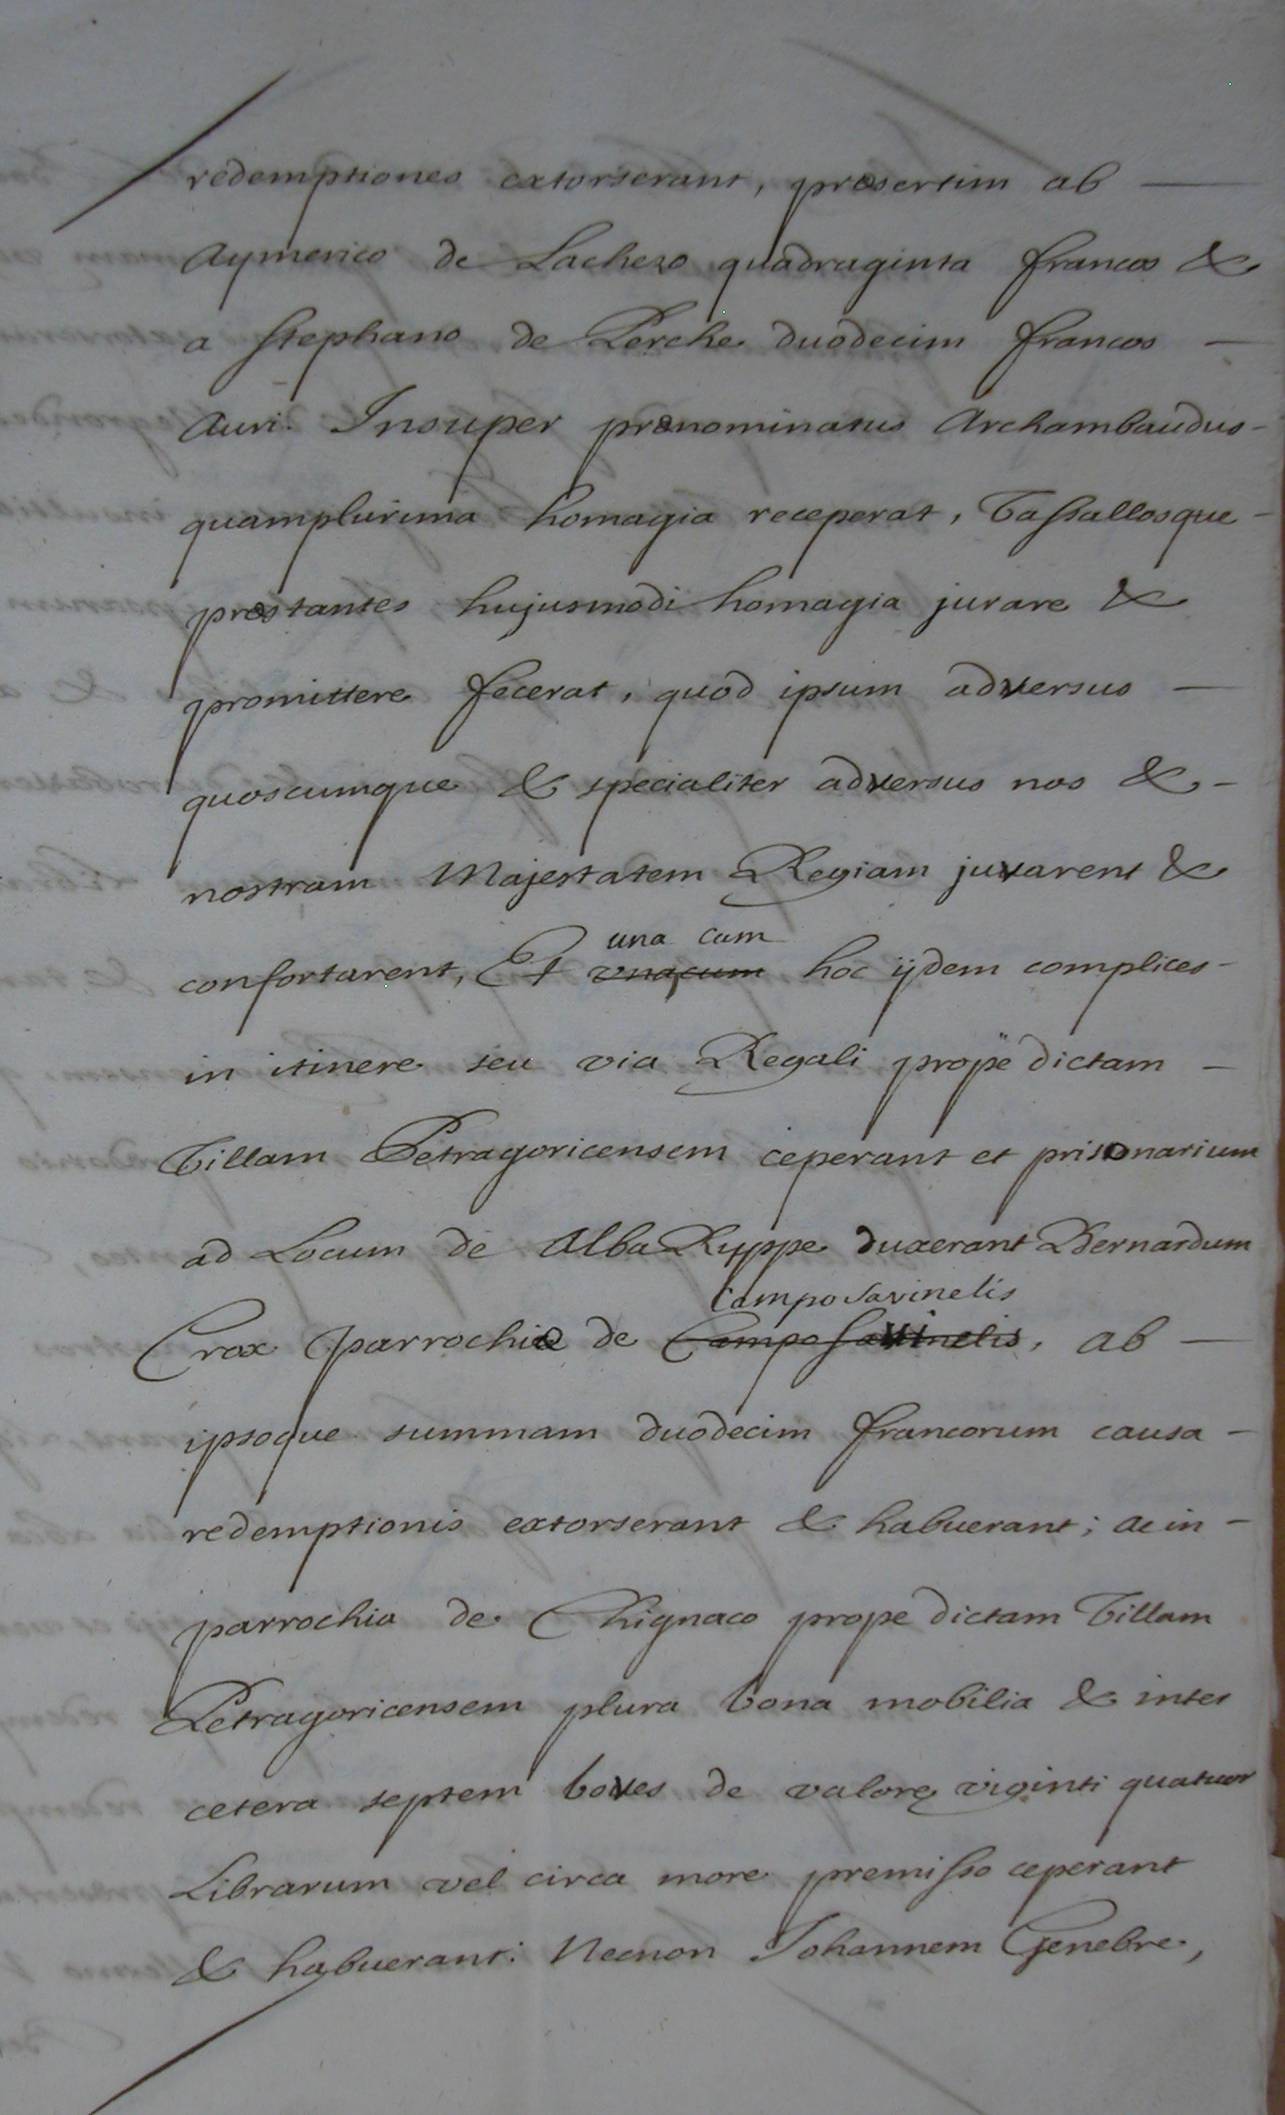 redemptiones extorserant, præsertim ab —
Aymerico de Lachezo quadraginta francos &
a Stephano de Perche duodecim francos —
Auri. Insuper prænominatus Archambaudus -
quamplurima homagia receperat, Vassallosque -
præstantes hujusmodi homagia jurare &
promittere fecerat, quod ipsum adversus —
quoscumque & specialiter adversus nos & -
nostram Majestatem Regiam juvarent &
una cum
confortarent, Et vnacum hoc ijdem complices -
in itinere seu via Regali prope dictam —
Villam Petragoricensem ceperant et prisonarium
ad Locum de Alba Ruppe duxerant Bernardum
Campo Savinelis
Crox parrochiæ de Campo Savinelis, ab —
ipsoque summam duodecim francorum causa -
redemptionis extorserant & habuerant; ac in -
parrochia de Chignaco prope dictam Villam
Petragoricensem plura bona mobilia & inter
cetera septem boves de valore viginti quatuor
Librarum vel circa more premisso ceperant
& habuerant: Necnon Johannem Genebre,